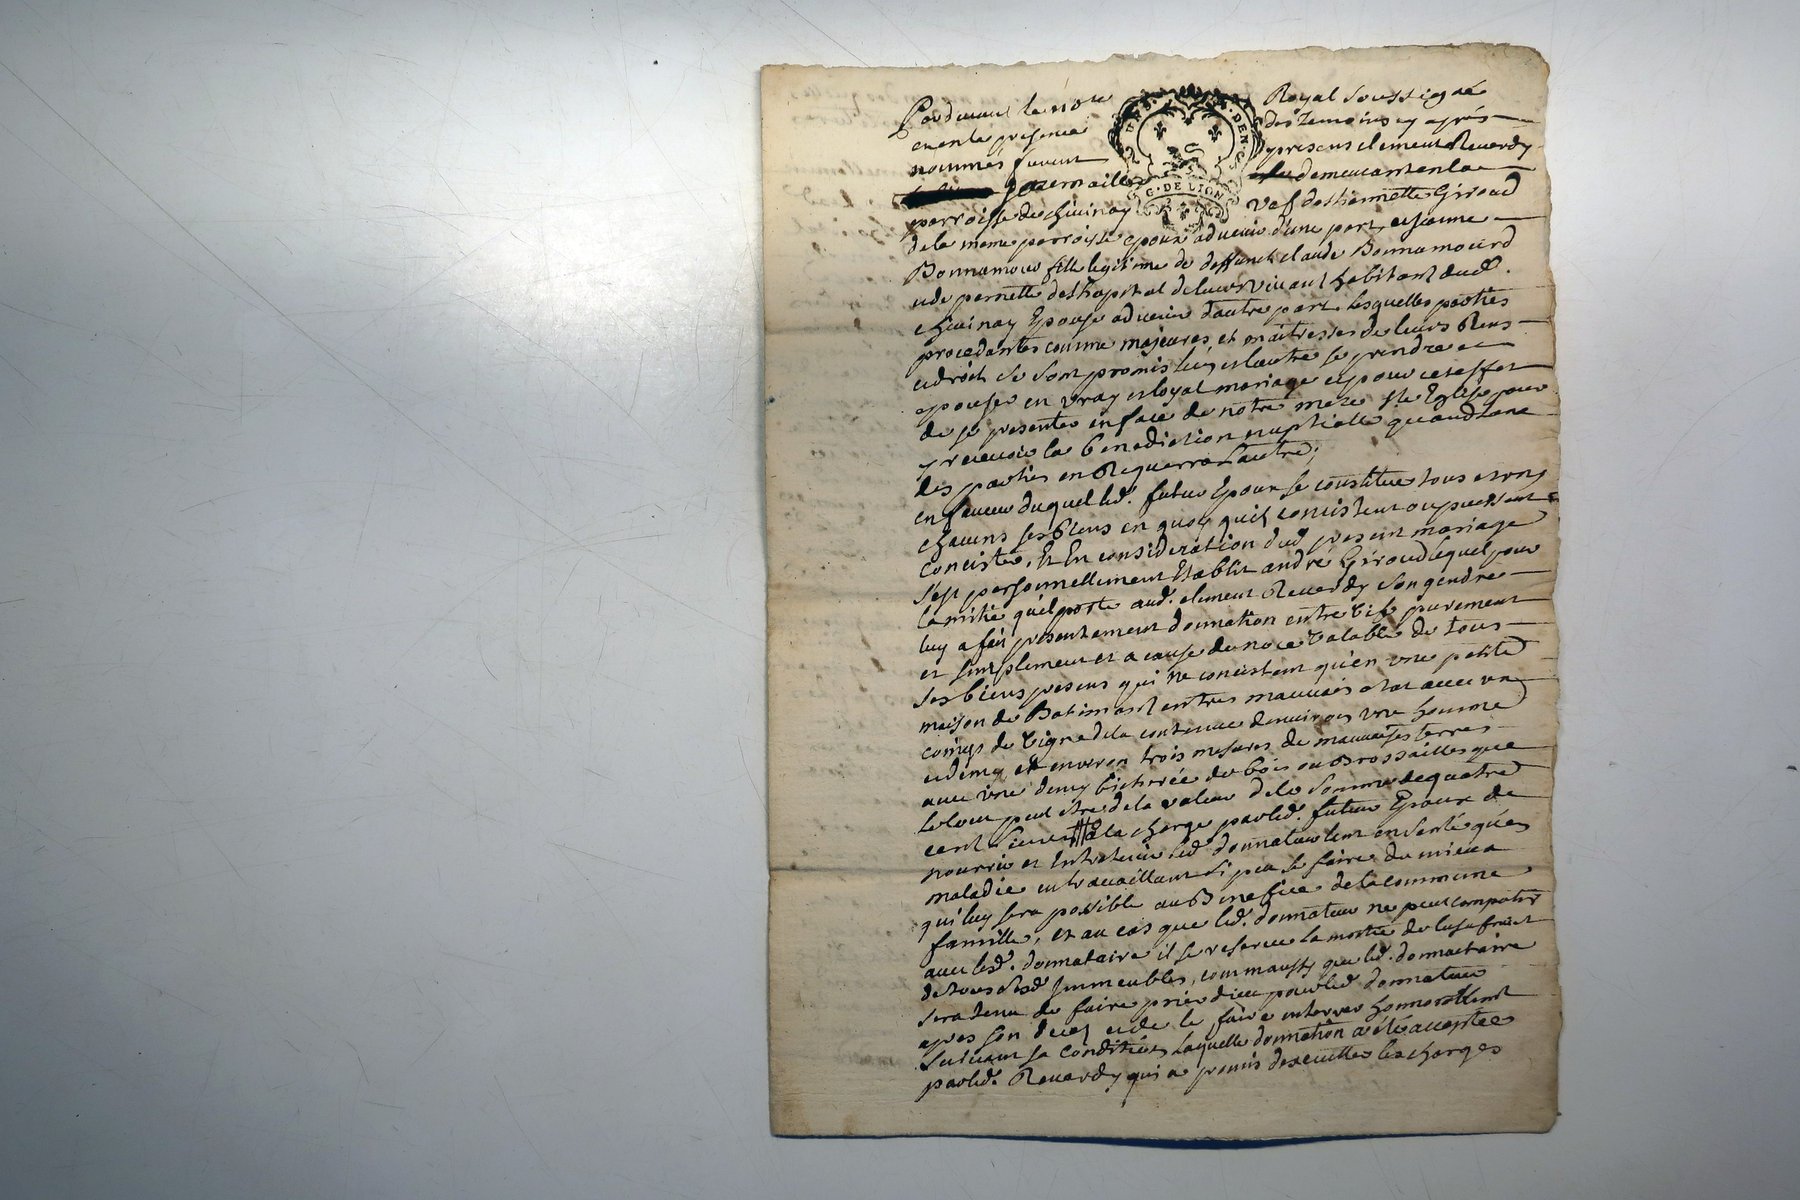 Pardevant le no.re Royal soussigné
et en la presence des temoins cy aprés
nommés furent presens clement Reverdy
demeurant en la
parroisse de chivinay vef de thiennette Giroud
de la meme parroisse epoux advenir d'une part, et jeanne
Bonnamour fille legitime de deffunct claude Bonnamourd
et de pernette deshopital delaurs vivant habitant aud.
chivinay Epouse advenir d'autre part lesquelles parties
procedantes comme majeures, et maitresses de leurs Biens
et droits se sont promis lun, et lautre se prendre et
epouser en vray et loyal mariage et pour cet effet
de se presenter en face de notre mere s.te Eglise pour
y recevoir la benediction nuptialle quand lune
des parties en Requerra Lautre;
en faveur duquel led. futur Epoux se constitue tous et uns
chacuns ses biens en quoy quils consistent ou puissent
concister, Et En consideration dud present mariage
s'est personnellement Etablit andré Giroud lequel pour
lamitié quil porte aud. clement Reverdy son gendre
luy a fait presentement donnation entre vifs purement
et simplement et a cause de noce valable de tous
ses biens presens qui ne concistent qu'en une petite
maison de Batiment en tres mauvais etat avec un
coing de vigne de la contenue denviron une homme
et demy, et environ trois mesures de mauvaises terres
avec une demy bicherée de bois ou Brossailles que
le tout peut être de la valeur de la somme de quatre
cent livres a la charge par led. futur Epoux de
nourrir et Entretenir led donnateur tant en santé qu'en
maladie en travaillant si peu se faire du mieux
qui luy sera possible au Benefice de la commune
famille, et au cas que led. donnateur ne peut compatir
avec led. donnataire il se reserve la moitié de lusufruit
de tous sesd Immeubles, comm'aussy que led. donnataire
sera tenu de faire prier dieu pour led donnateur
apres son decez et de le faire enterrer honnorablement
suivant sa condition, Laquelle donnation a été acceptée
par led. Reverdy qui a promis dexecuter les charges
G. DE LION